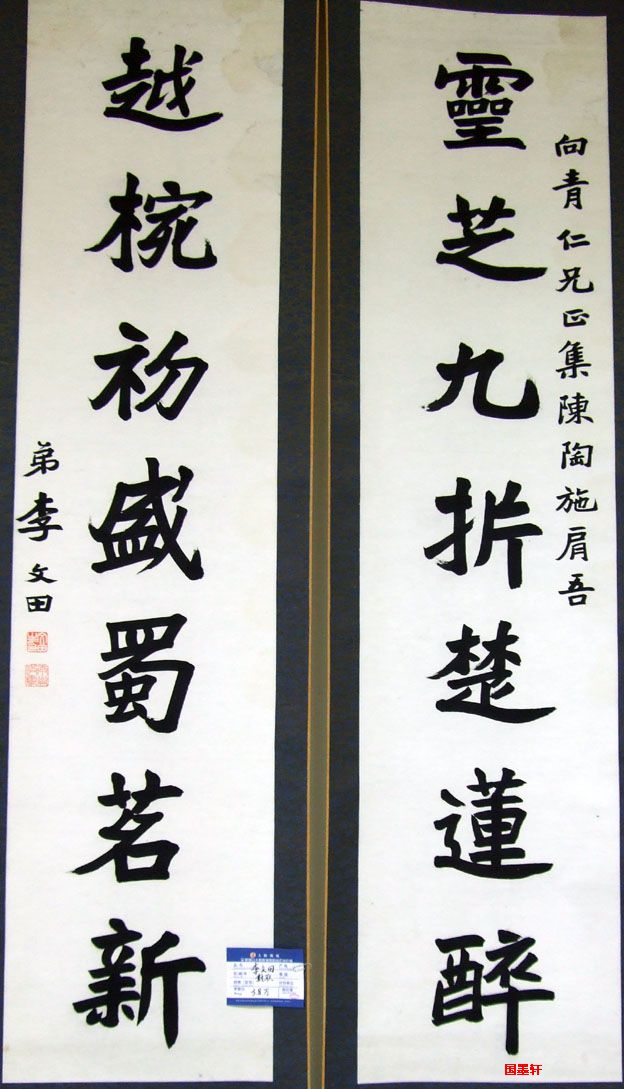 靈芝九折楚蓮醉
向青仁兄正集陳陶施肩吾
越椀初盛蜀茗新
弟李文田
李文田
对联
38万
国墨轩